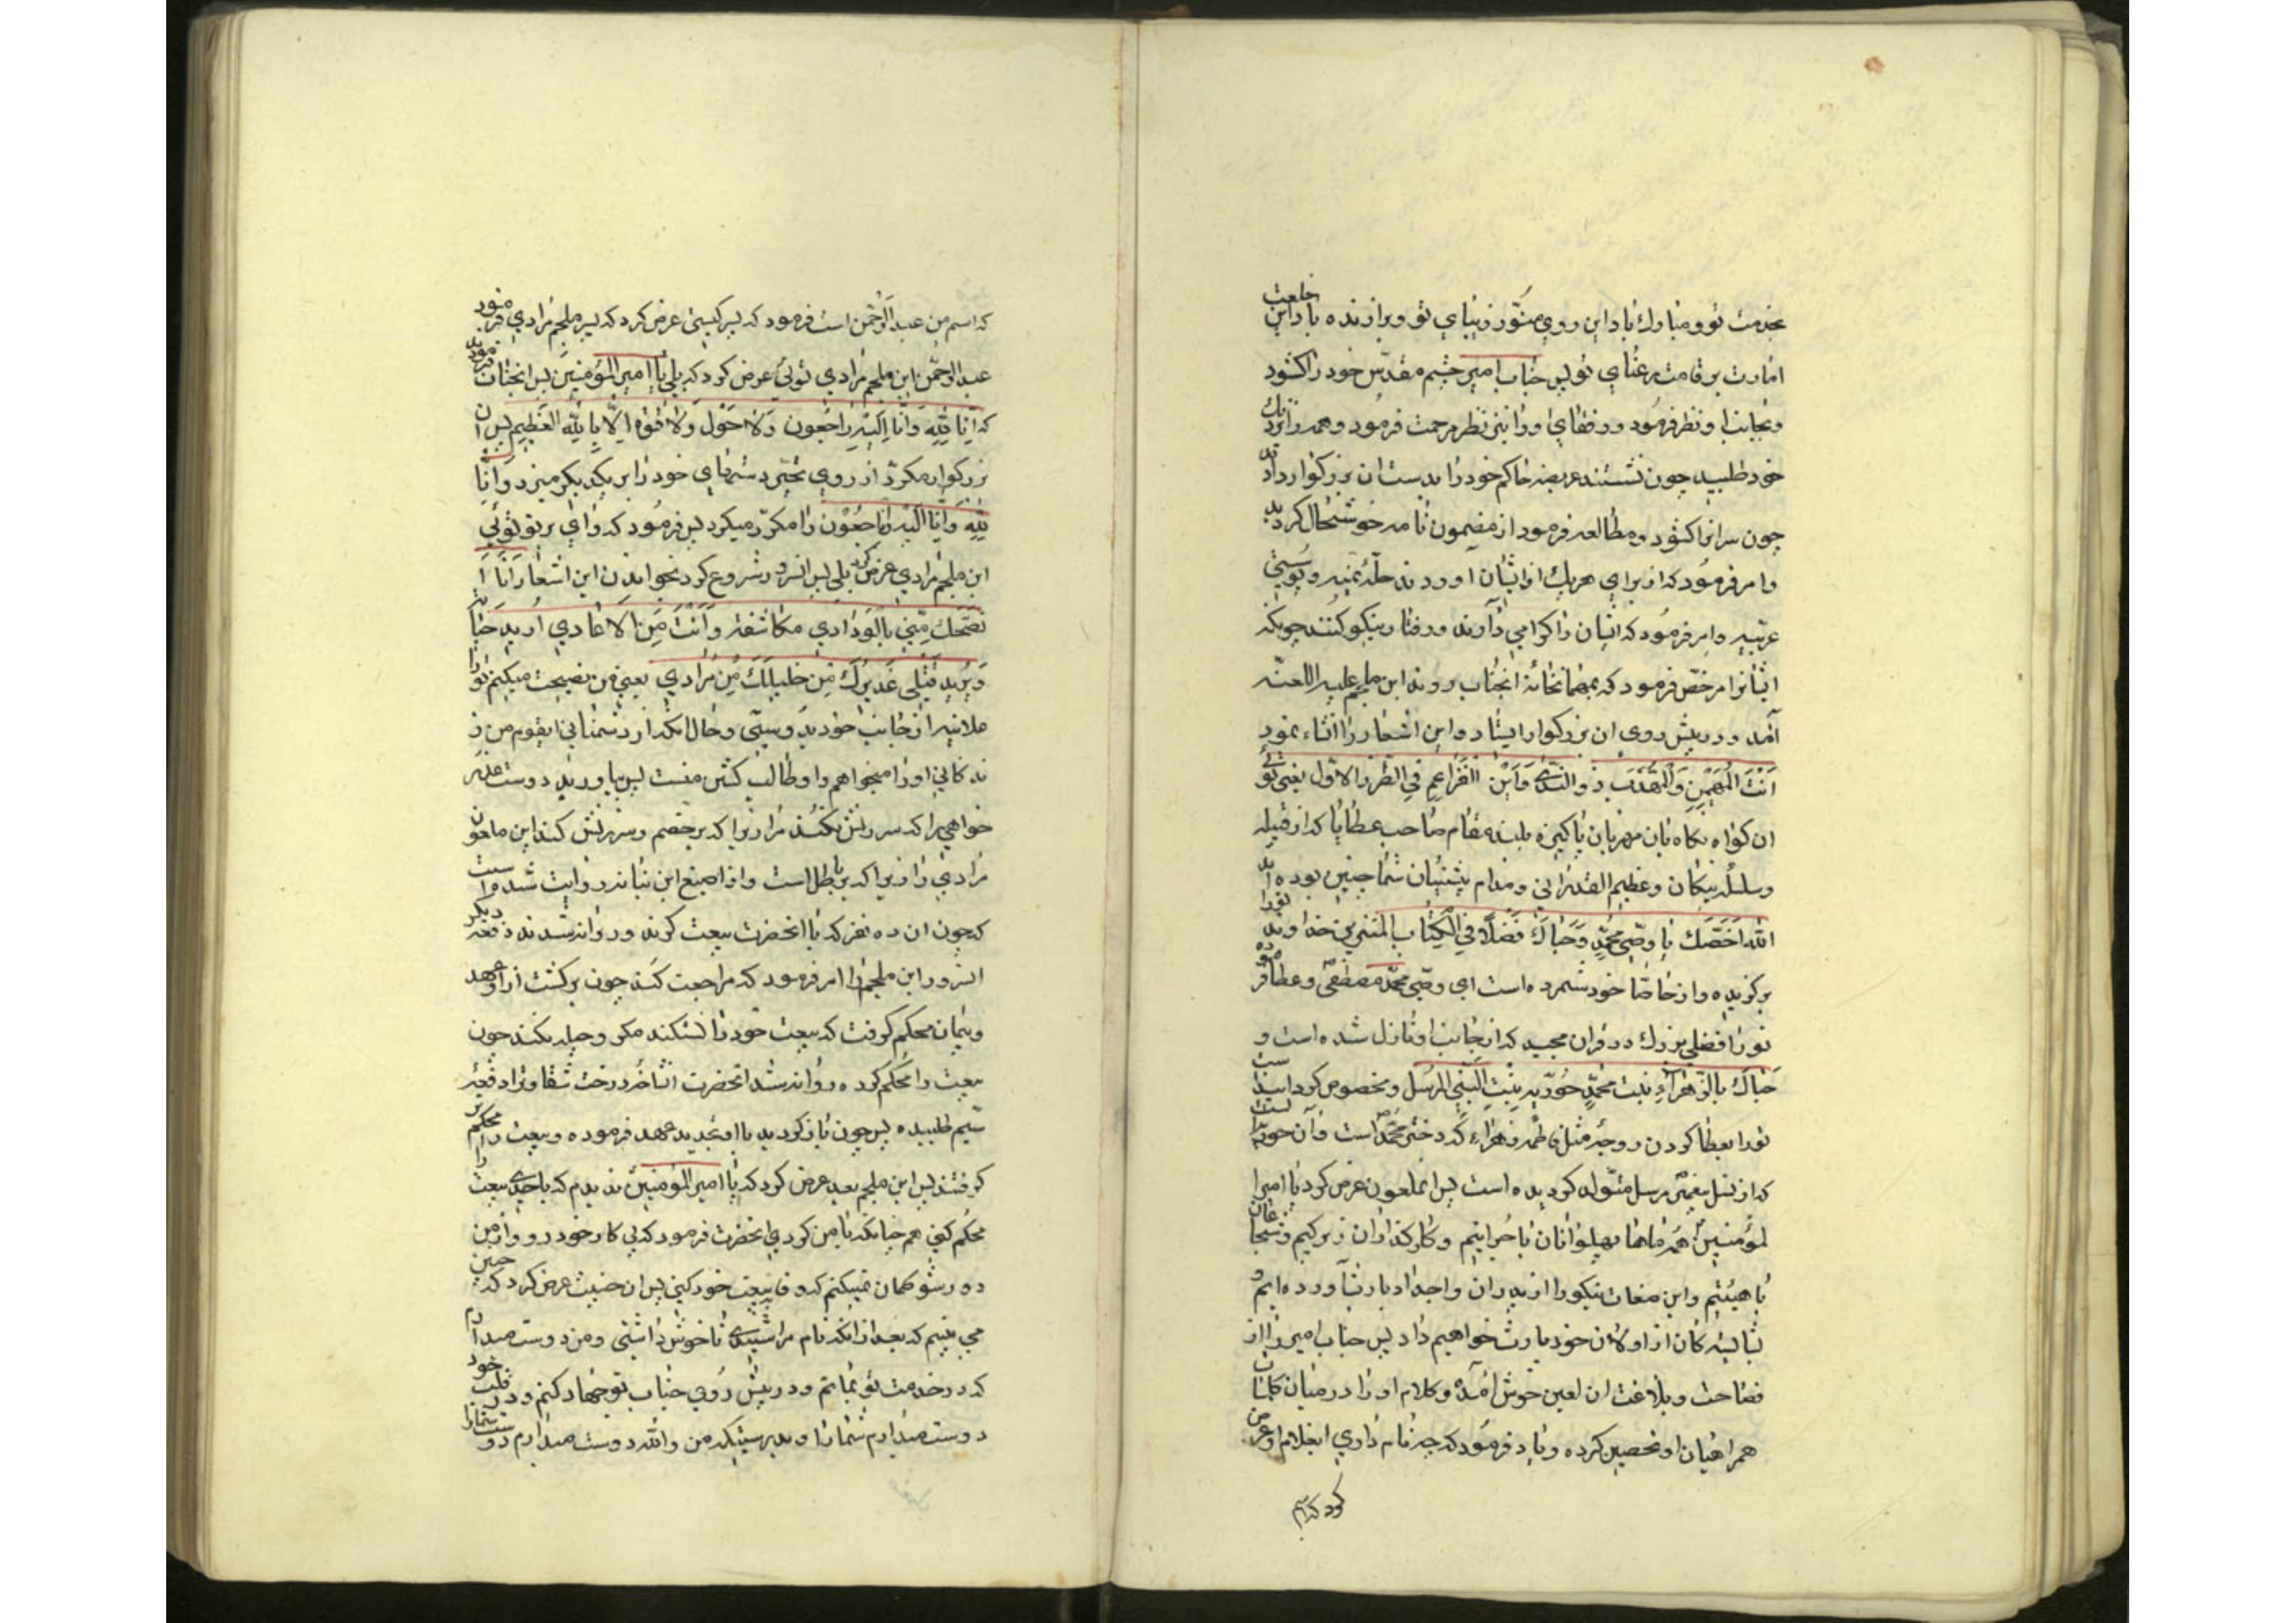 بخدمت تو و مبارك باد این روی منوّر زیبای تو و برازنده باد این خلعت
امارت بر قامت رعنای تو پس جناب امیر چشم مقدّس خود را کشود
و بجانب او نظر فرمود و رفقای او را نیز نظر مرحمت فرمود و همه را نزدیك
خود طلبید چون نشستند عریضه حاکم خود را بدست ان بزرکوار دادند
چون سر انرا کشود و مطالعه فرمود از مضمون نامه خوشحال کردید
و امر فرمود که از برای هریك از ایشان اوردند حلّهٔ یمنیه و
عربیه و امر فرمود که ایشان را کرامی دارند و رفتار نیکو کنند چونکه
ایشانرا مرخّص فرمود که بمهمانخانهٔ انجناب روند ابن ملجم علیه اللعنه
آمد و در پیش روی ان بزرکوار ایستاد و این اشعار را انشاء نمود
اَنْتَ الْمُهَیْمِن وَالْمُهَذَّب ذو النّدی وَابْن الضَراغِمِ فِی الطّرازِ الاوّل یعنی توئی
ان کواه نکاه بان مهربان پاکیزه بلند مقام صاحب عطایا که از قبیله
و سلسله نیکان و عظیم القدرانی و مدام پشتیبان شما چنین بوده اند
اللّه اخَصَّكَ یا وصّی محمّدٍ وَحَباكَ فَضْلًا فِی الْکِتاب المنزلِ خداوند تورا
برکزیده و از خاصّان خود شمرده است ای وصّی محمّد مصطفی و عطا فرموده
تورا فضلی بزرك در قران مجید که از جانب او نازل شده است و
حَباكَ بالزّهرآءِ بنت محمّدٍ حُوریه بِنْتِ النَّبی المرسَل و مخصوص کردانیده است
تورا بعطا کردن زوجهٔ مثل فاطمه زهراء که دختر محمّد است و آن حوریه است
که از نسل پیغمبر مرسل متولّد کردیده است پس انملعون عرض کرد یا امیرا
لمؤمنین همه ماها پهلوانان با جراتیم و کارکذاران زیرکیم و شجاعان
با هیبتیم و این صفات نیکو را از پدران و اجداد بارث آورده ایم و
بشایسته کان از اولادان خود بارث خواهیم داد پس جناب امیر را از
فصاحت و بلاغت ان لعین خوش آمده و کلام او را در میان کلمات
همراهیان او تحصین کرده و باو فرمود که چه نام داری ایغلام او عرض
کرد که اسم
که اسم من عبدالرّحمن است فرمود که پسر کیستی عرض کرد که پسر ملجم مرادی فرمود
عبدالرحمن ابن ملجم مرادی توئی عرض کرد که بلی یا امیرالمؤمنین پس انجناب فرمود
که اِنّا للّهِ وَاِنّا اِلَیْهِ راجِعُون وَلا حَوْلَ وَلا قُوّه اِلّا بِاللّه العَظیم پس ان
بزرکوار مکرّر از روی تحیّر دستهای خود را بر یکدیکر میزد و اِنّا
للّهِ وَاِنّا الَیْهِ راجِعُوْن را مکرّر میکرد پس فرمود که وای بر تو توئی
ابن ملجم مرادی عرض کرد بلی پس انسرور شروع کرد بخواندن این اشعار اَنَا اَ
نصَحُكَ مِنّی بالوَدادِی مکاشفهً وَاَنْتَ مِنَ الاَعادِی اُریدُ حَیاتَهُ
وَیُرید قَتْلی عَذیرُكَ مِن خَلیلِكَ مِن مُرادی یعنی من نصیحت میکنم تو را
علانیه از جانب خود بدوستی و حال انکه از دشمنانی ایقوم من ز
ندکانی او را میخواهم و او طالب کشتن منست پس بیاورید دوست عذر
خواهی را که سرزنش نکند مرا زیرا که بر حقم و سرزنش کند این ملعون
مرادی را زیرا که بر باطل است و از اصبغ ابن نباته روایت شده است
که چون ان ده نفر که با انحضرت بیعت کرده و روانه شدند دفعه دیکر
انسرور ابن ملجم را امر فرمود که مراجعت کند چون برکشت از او عهد
و پیمان محکم کرفت که بیعت خود را نشکند و مکر و حیله نکند چون
بیعت را محکم کرده و روانه شد انحضرت انشاخهٔ درخت شقاوترا دفعه
سیّم طلبیده پس چون باز کردید با او تجدید عهد فرموده و بیعت را محکم تر
کرفتند پس ابن ملجم بعد عرض کرد که یا امیر المؤمنین ندیدم که با احدی بیعت را
محکم کنی هم چنانکه با من کردی انحضرت فرمود که پی کار خود رو و از من
دور شو کمان نمیکنم که وفا ببیعت خود کنی پس ان خبیث عرض کرد که چنین
می بینم که بعد از انکه نام مرا شنیدی ناخوش داشتی و من دوست میدارم
که در خدمت تو بمانم و در پیش روی جناب تو جهاد کنم و در قلب خود
دوست میدارم شما را و بدرستیکه من واللّه دوست میدارم دوست شما را